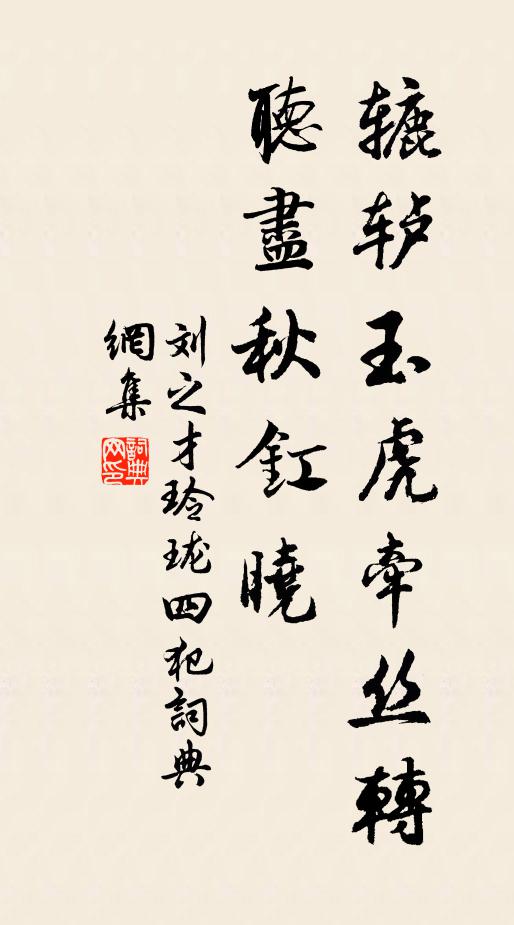 辘轳玉虎牵丝轉
聽盡秋釭曉
刘之才玲珑四犯詞典
網集
詞典
网印